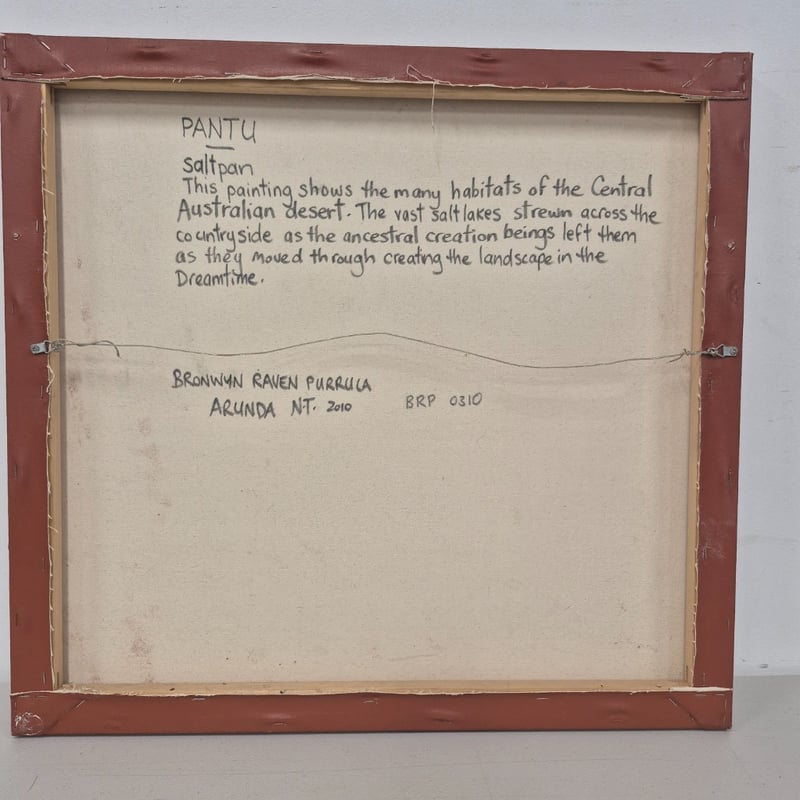 PANTU
saltpan
This painting shows the many habitats of the Central
Australian desert. The vast saltlakes strewn across the
countryside as the ancestral creation beings left them
as they moved through creating the landscape in the
Dreamtime.
BRONWYN RAVEN PURRULA
ARUNDA N.T. 2010 BRP 0310